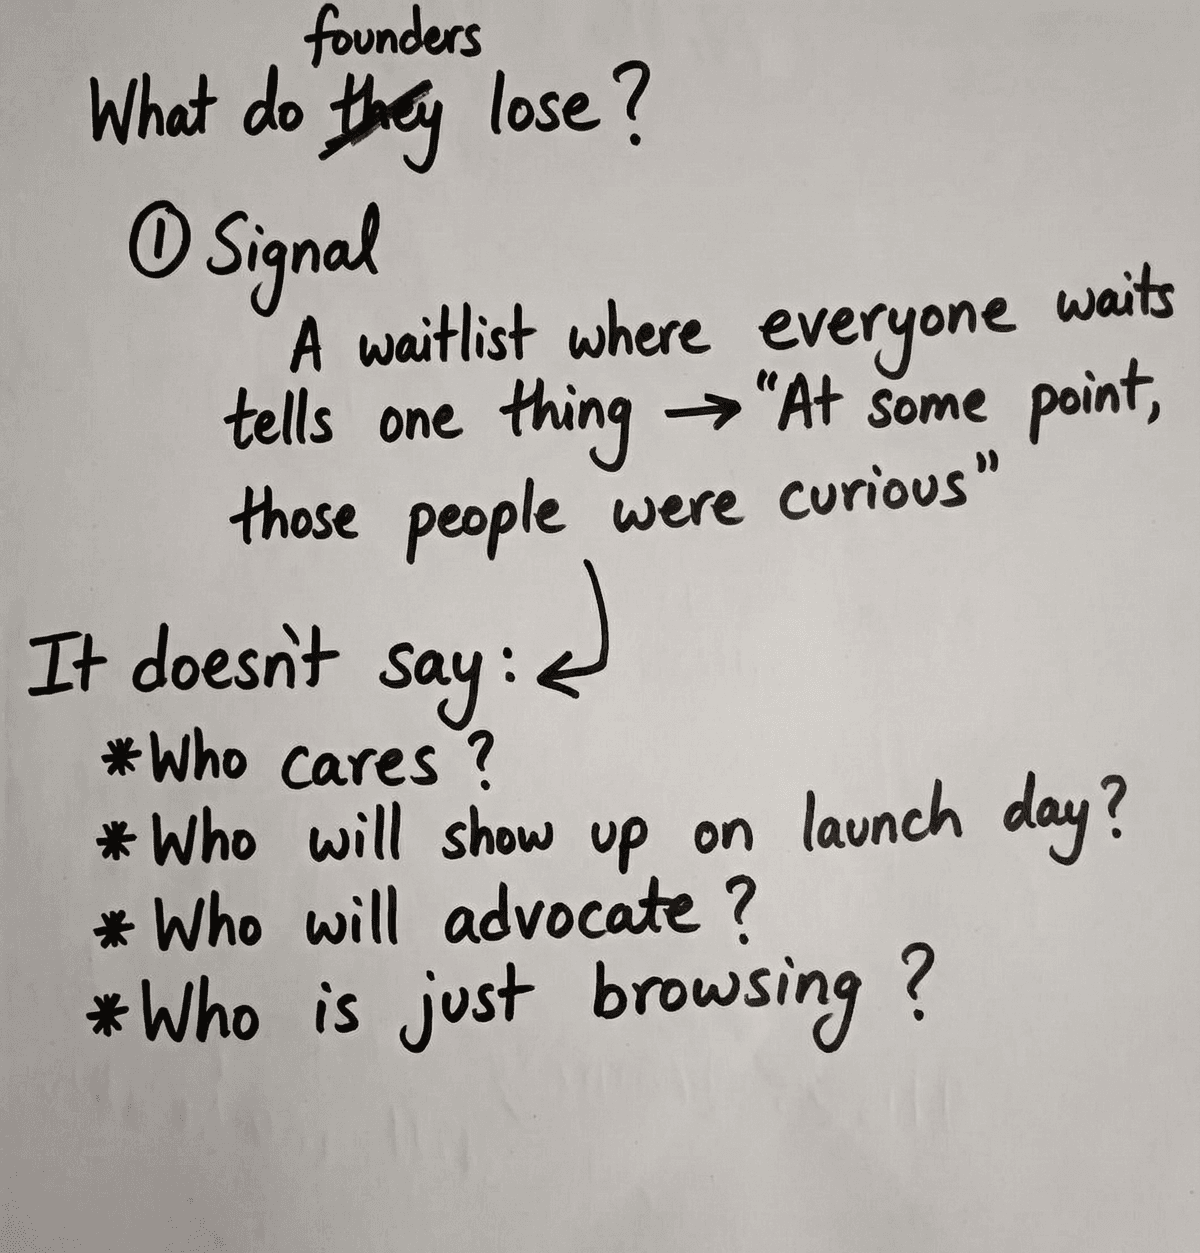 founders
What do they lose?
① Signal
A waitlist where everyone waits
tells one thing → "At some point,
those people were curious"
It doesn't say:
* Who cares?
* Who will show up on launch day?
* Who will advocate?
* Who is just browsing?